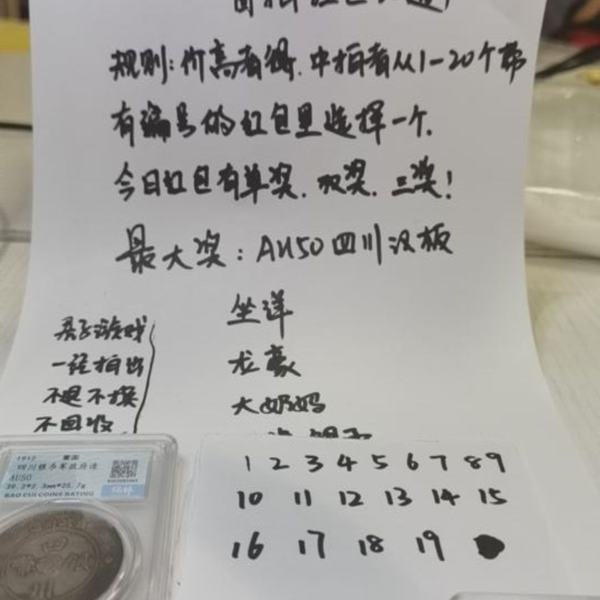 规则:价高者得.中拍者从1-20个带
有编号的红包里选择一个.
今日红包有单奖.双奖.三奖!
最大奖:AU50四川汉板
坐洋
龙毫
大奶奶
亲子游戏
一经拍出
不退不换
不回收
1912
四川银币军政府造
AU50
39.2*2.3mm*25.7g
BAO CUI COINS RATING
1 2 3 4 5 6 7 8 9
10 11 12 13 14 15
16 17 18 19